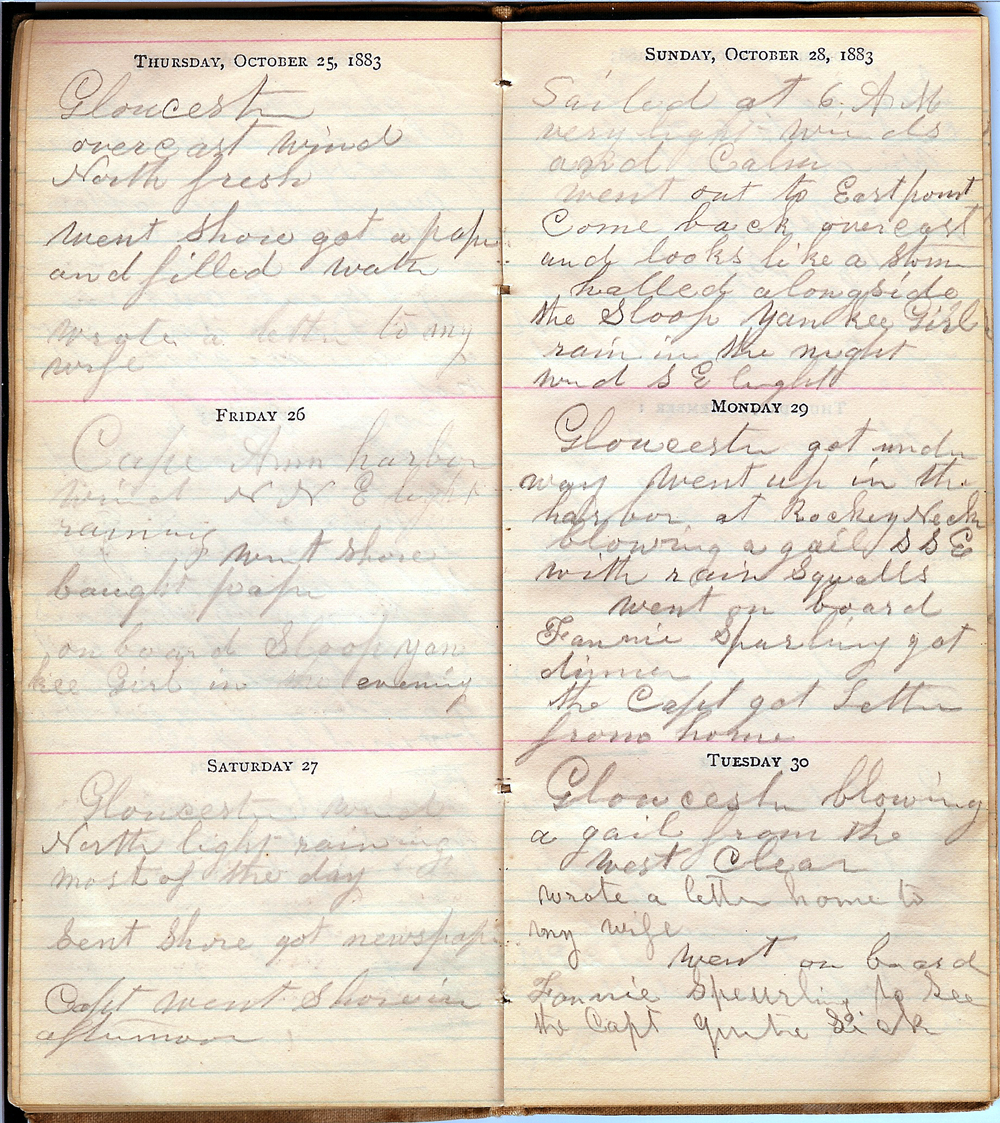 Thursday, October 25, 1883
Gloucester
overcast wind
North fresh
went shore got a paper
and filled water
wrote a letter to my
wife
Friday 26
Cape Ann harbor
wind N N E light
raining
went shore
bought paper
on board Sloop yan
kee Girl in the evening
Saturday 27
Gloucester wind
North light raining
most of the day
Sent Shore got newspaper
Capt went Shore in
afternoon
Sunday, October 28, 1883
Sailed at 6. A M
very light winds
and Calm
went out to Eastpoint
Come back overcast
and looks like a storm
halled alongside
the Sloop Yankee Girl
rain in the night
wind S E light
Monday 29
Gloucester got under
way went up in the
harbor at Rockey Neck
blowing a gail S S E
with rain Squalls
went on board
Fannie Spurling got
dinner
the Capt got Letter
from home
Tuesday 30
Gloucester blowing
a gail from the
West Clear
wrote a letter home to
my wife
went on board
Fannie Speurling to See
the Capt quite Sick